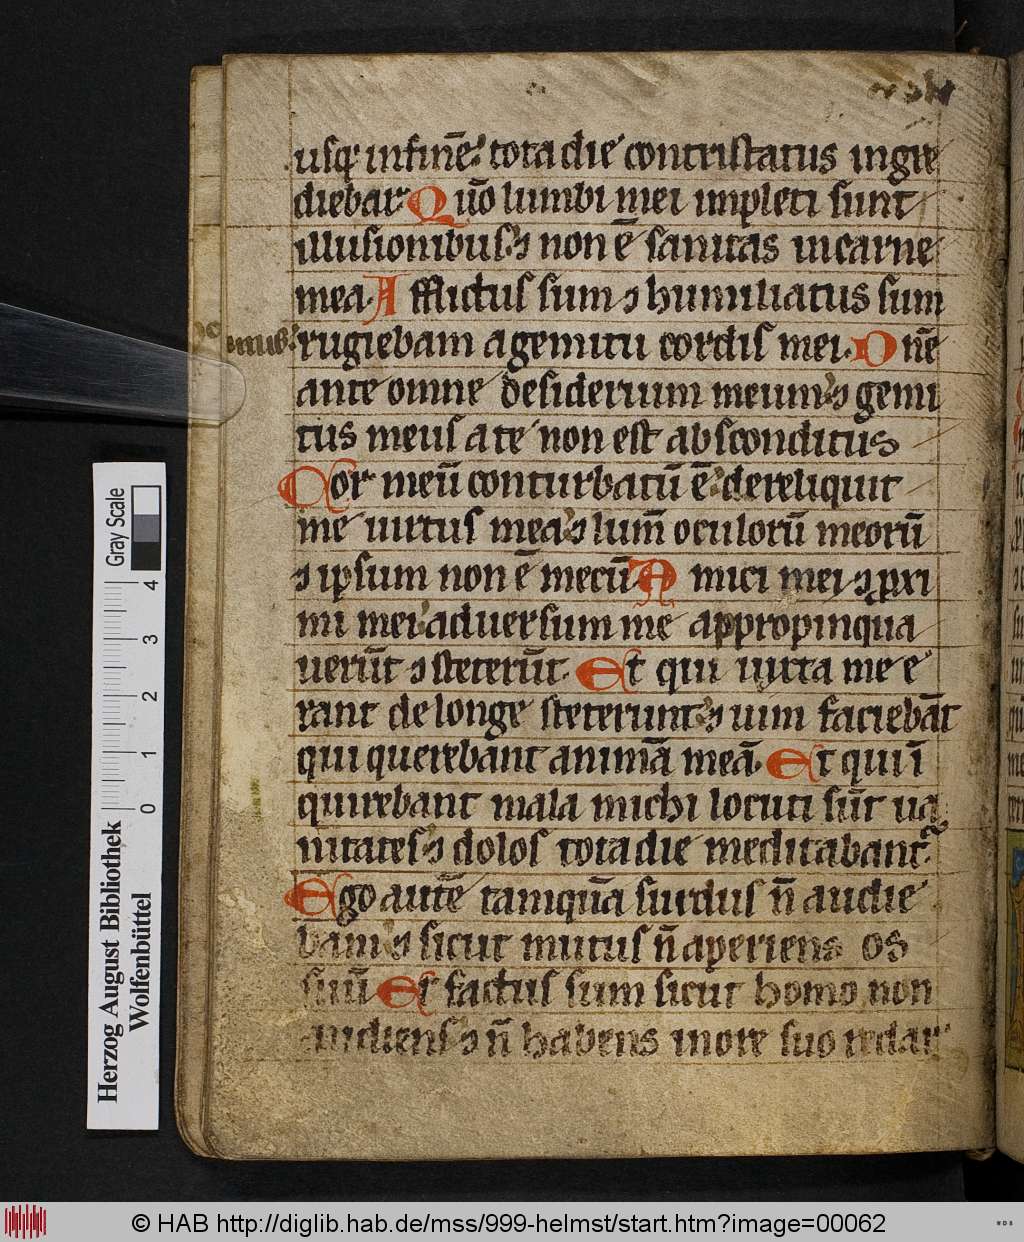 usq; in finē. tota die contristatus ingre
diebar. Quō lumbi mei impleti sunt
illusionibus. ⁊ non ē sanitas in carne
mea. Afflictus sum ⁊ humiliatus sum
rugiebam a gemitu cordis mei. Dnē
ante omne desiderium meum. ⁊ gemi
tus meus a te non est absconditus
Cor meū conturbatū ē dereliquit
me uirtus mea. ⁊ lum̄ oculorū meorū
⁊ ipsum non ē mecū. Amici mei ⁊ ꝓxi
mi mei aduersum me appropinqua
uerūt ⁊ steterūt. Et qui iuxta me e
rant de longe steterunt. ⁊ uim faciebāt
qui querebant animā meā. Et qui ī
quirebant mala michi locuti sūt ua
nitates. ⁊ dolos tota die meditabant᷑.
Ego autē tamquā surdus n̄ audie
bam. ⁊ sicut mutus n̄ aperiens os
suū. Et factus sum sicut homo non
audiens. ⁊ n̄ habens in ore suo redar
Herzog August Bibliothek
Wolfenbüttel
Gray Scale
0 1 2 3 4
© HAB http://diglib.hab.de/mss/999-helmst/start.htm?image=00062